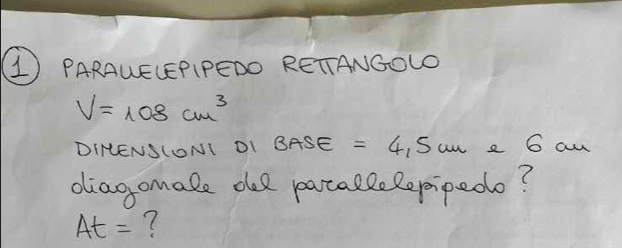 1 PARALLELEPIPEDO RETTANGOLO
V = 108 cm³
DIMENSIONI DI BASE = 4,5 cm e 6 cm
diagonale del parallelepipedo?
At = ?